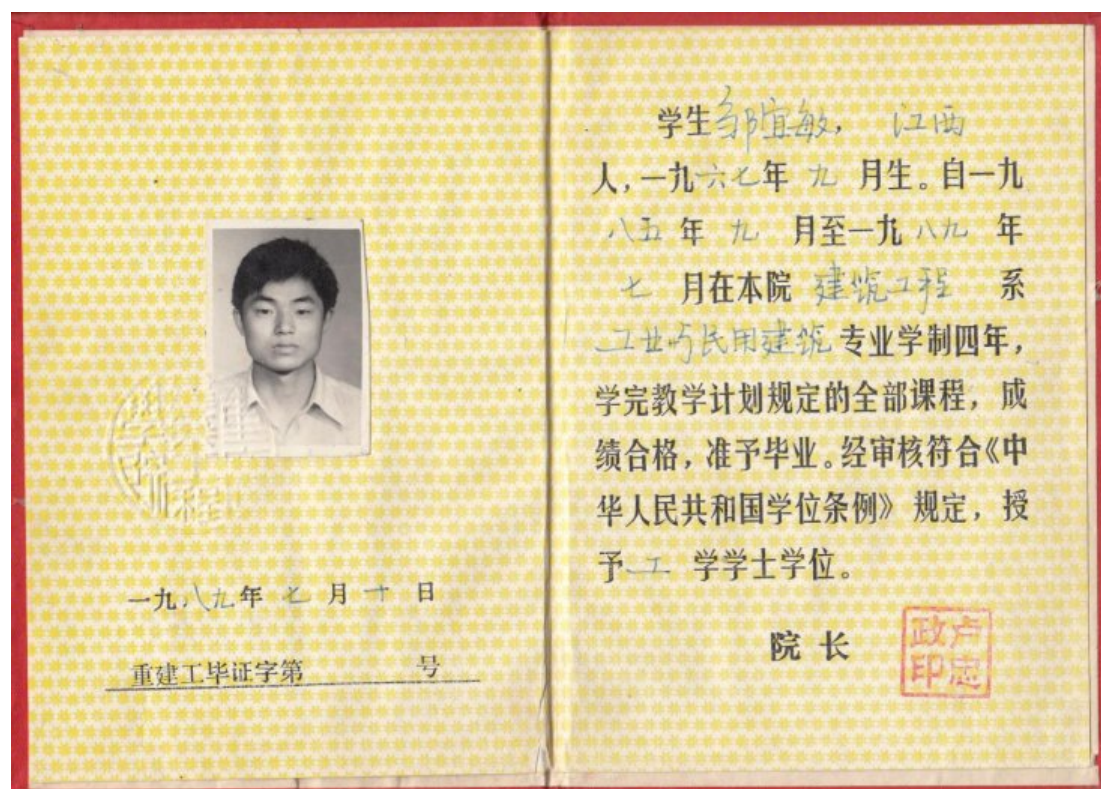 一九八九年 七 月 十 日
重建工毕证字第 号
学生邹宜敏， 江西
人，一九六七年 九 月生。自一九
八五 年 九 月至一九八九 年
七 月在本院 建筑工程 系
工业与民用建筑专业学制四年，
学完教学计划规定的全部课程，成
绩合格，准予毕业。经审核符合《中
华人民共和国学位条例》规定，授
予 工 学学士学位。
院 长
卢忠
政印